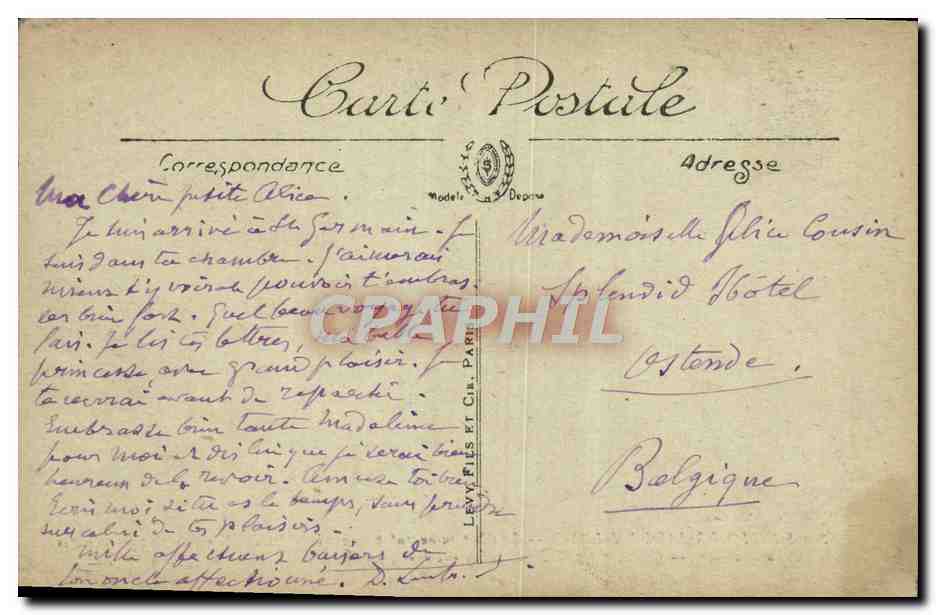 Carte Postale
Correspondance
Adresse
Modèle Déposé
Ma Chère petite Alice.
Je suis arrivé à St Germain. Je
suis dans ta chambre. J'aimerais
mieux t'y voir et pouvoir t'embras-
ser bien fort. Quel beau voyage tu
fais. Je lis tes lettres, ma belle
princesse, avec grand plaisir. Je
te verrai avant de repartir.
Embrasse bien tante Madeleine
pour moi et dis lui que je serai bien
heureux de la revoir. Amuse toi bien
Ecris moi si tu as le temps, sans prendre
sur celui de tes plaisirs.
Mille affectueux baisers de
ton oncle affectionné. D.
Mademoiselle Alice Cousin
Splendid Hôtel
Ostende.
Belgique
LEVY, FILS ET CIE, PARIS
CPAPHIL